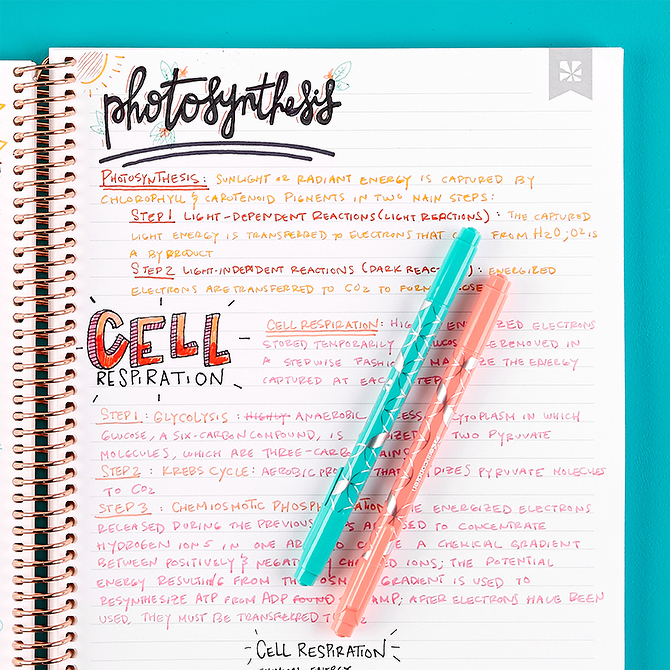 photosynthesis
PHOTOSYNTHESIS: SUNLIGHT OR RADIANT ENERGY IS CAPTURED BY
CHLOROPHYLL & CAROTENOID PIGMENTS IN TWO MAIN STEPS:
STEP 1 LIGHT-DEPENDENT REACTIONS (LIGHT REACTIONS): THE CAPTURED
LIGHT ENERGY IS TRANSFERRED TO ELECTRONS THAT FROM H2O; O2 IS
A BYPRODUCT
STEP 2 LIGHT-INDEPENDENT REACTIONS (DARK REAC): ENERGIZED
ELECTRONS ARE TRANSFERRED TO CO2 TO FORM
CELL
RESPIRATION
CELL RESPIRATION: HIGH ENERGIZED ELECTRONS
STORED TEMPORARILY REMOVED IN
A STEPWISE FASHION THE ENERGY
CAPTURED AT EACH STEP
STEP 1: GLYCOLYSIS: HIGHLY ANAEROBIC CYTOPLASM IN WHICH
GLUCOSE, A SIX-CARBON COMPOUND, IS TWO PYRUVATE
MOLECULES, WHICH ARE THREE-CARBON
STEP 2: KREBS CYCLE: AEROBIC THAT PYRUVATE MOLECULES
TO CO2
STEP 3: CHEMIOSMOTIC ENERGIZED ELECTRONS
RELEASED DURING THE PREVIOUS USED TO CONCENTRATE
HYDROGEN IONS IN ONE A CHEMICAL GRADIENT
BETWEEN POSITIVELY & CHARGED IONS; THE POTENTIAL
ENERGY RESULTING FROM GRADIENT IS USED TO
RESYNTHESIZE ATP FROM ADP FOUND AMP; AFTER ELECTRONS HAVE BEEN
USED, THEY MUST BE TRANSFERRED TO
CELL RESPIRATION